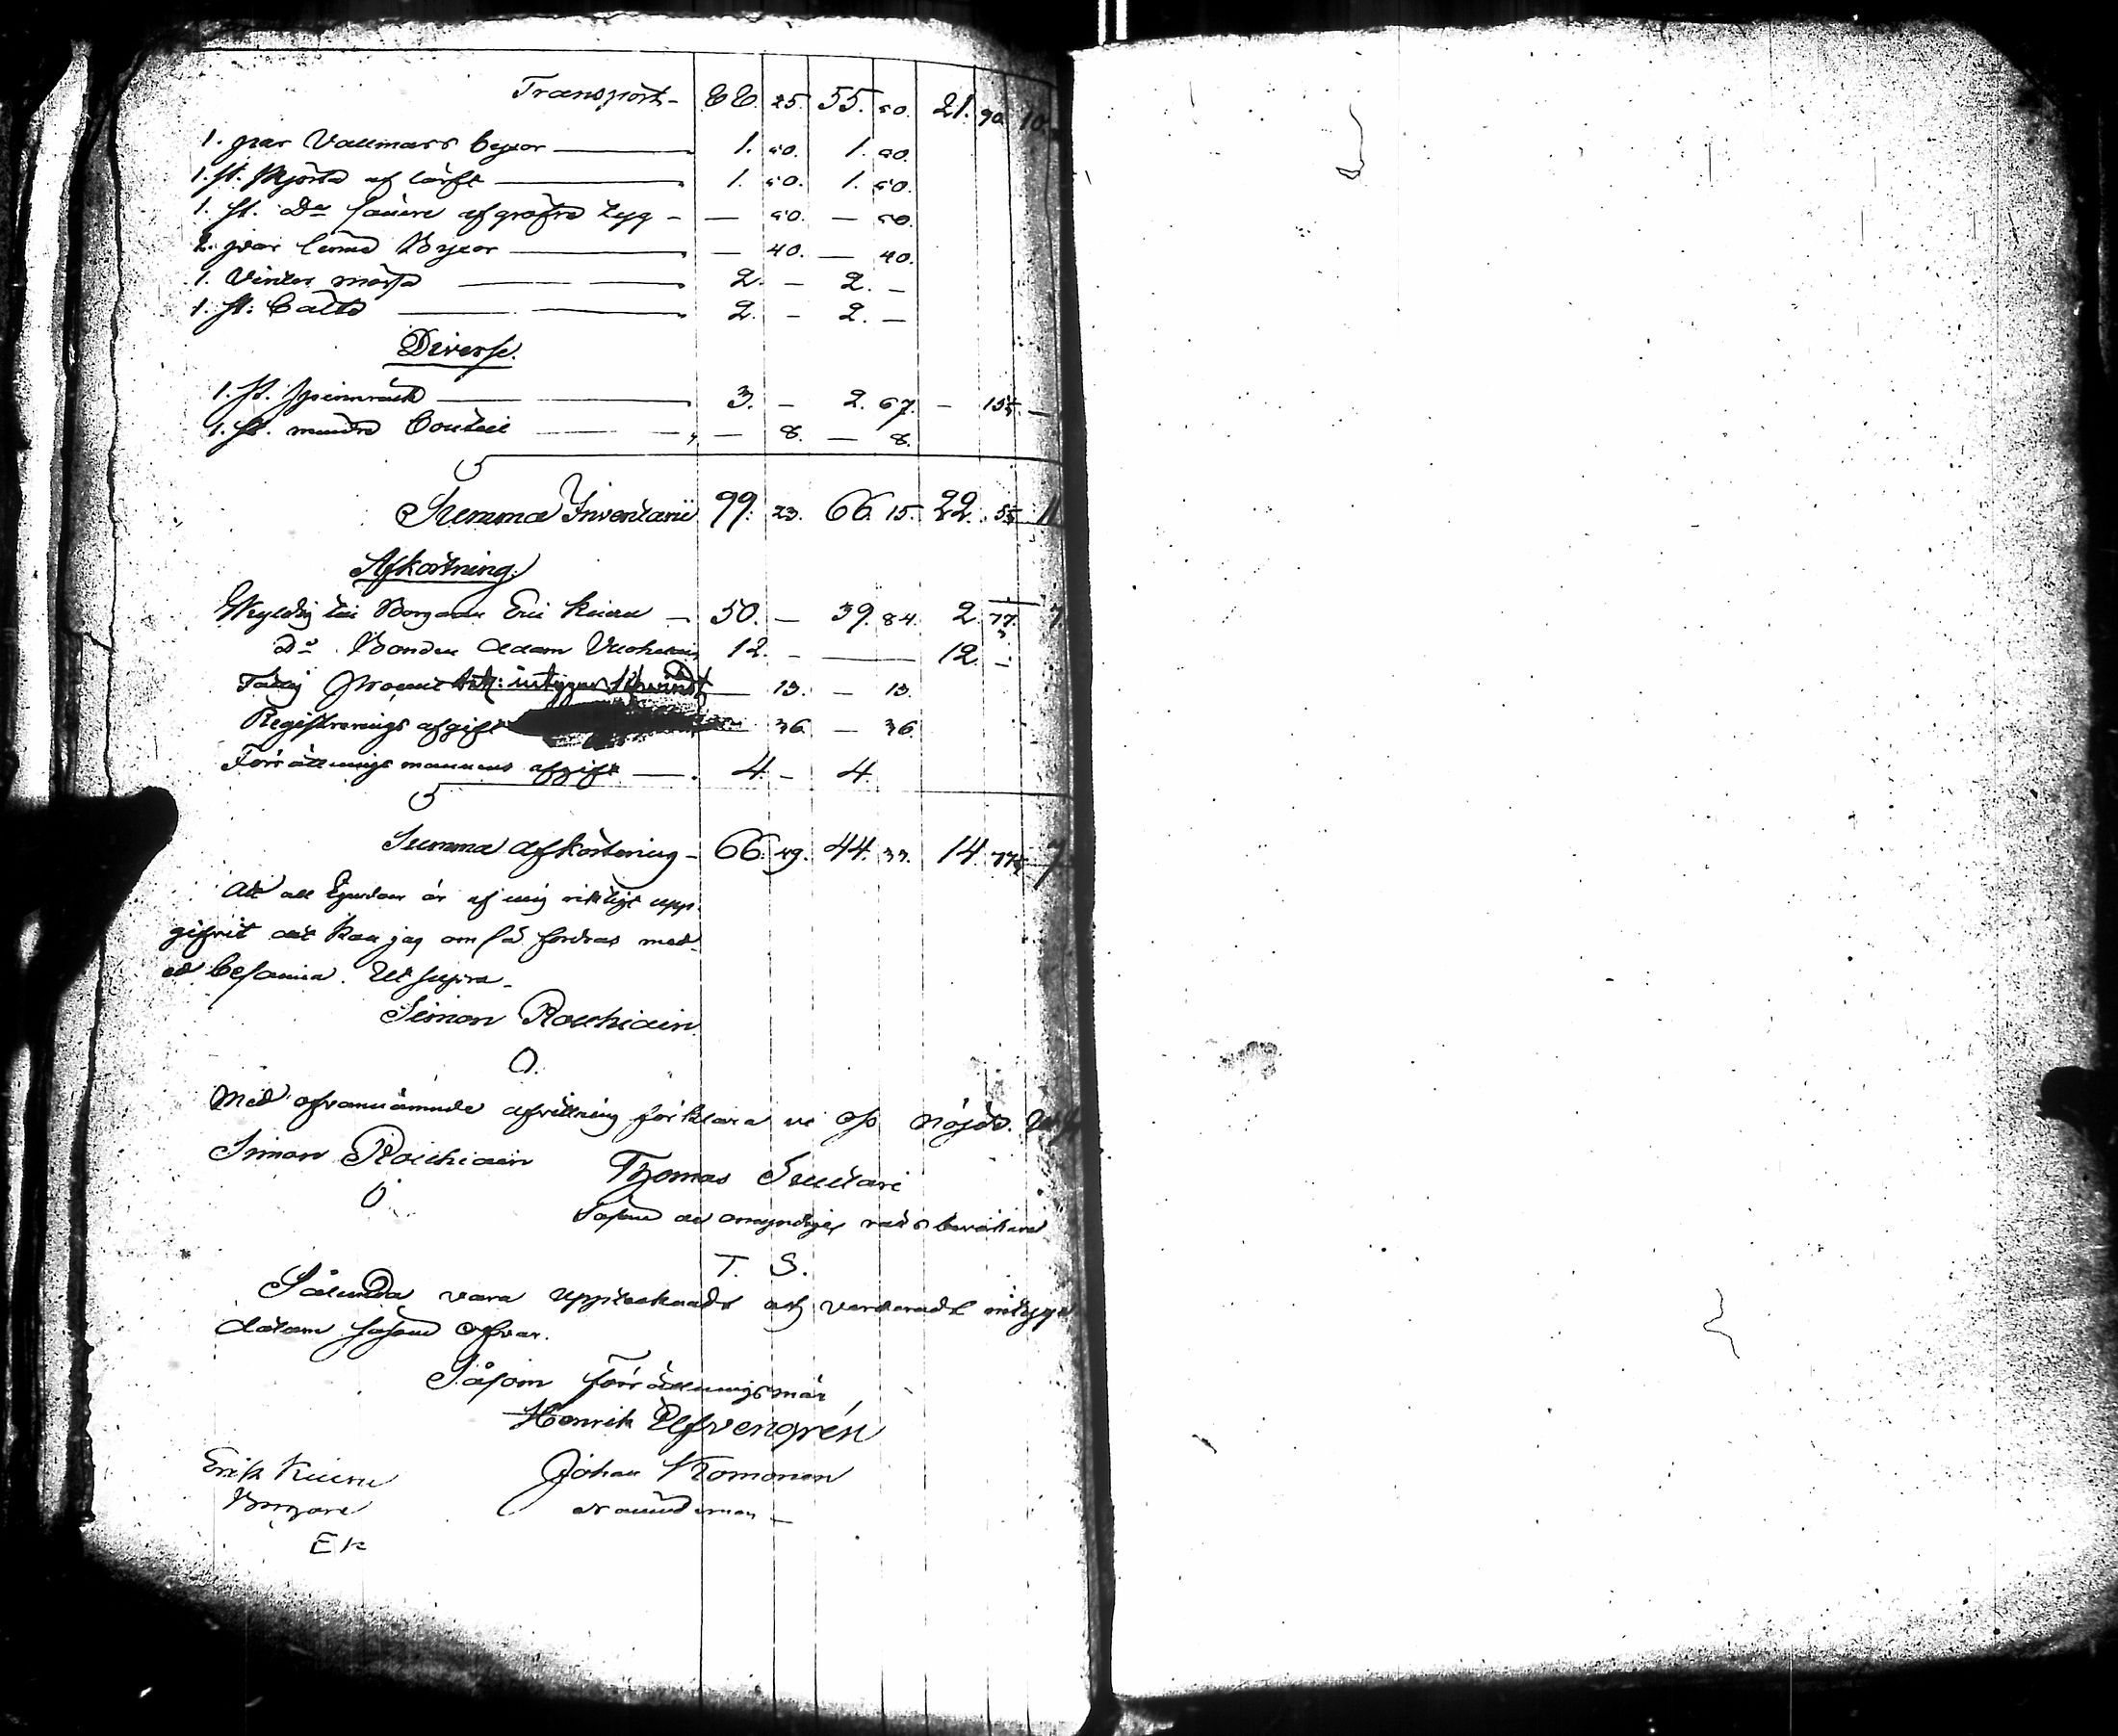 Transport - 88. 25. 55. 50. 21. 90. 10.
1. par Vallmars byxor — 1. 50. 1. 50.
1. st. skjorta af lärft — 1. 50. 1. 50.
1. st. Do sämre af gröfre tyg - — 50. — 50.
2. par Byxor — — 40. — 40.
1. Vinter mössa — 2. - 2. -
1. st. Bälte — 2. - 2. —
Diverse.
1. st. spinnrock — 3. - 2. 67. -
1. st. mindre Bouteil — — 8. — 8.
Summa Inventarii 99. 23. 66. 15. 22. 55 11
Afkortning.
Skyldig till Borgare Eric — 50. — 39. 84. 2. 77. 7.
Do Bonden Adam 12. - — 12. -
Fattig Procent — 13. — 13.
Registrerings afgift — 36 — 36
Förrättnings mannens afgift — 4. - 4.
Summa afkortning - 66. 49. 44. 33. 14. 7
Att all Egendom är af mig riktigt upp-
gifvit det kan jag om så fordras med
ed besanna. Ut supra.
Simon
O.
Med ofvannämnde afvittring förklara vi oss nöjde.
Simon
Thomas
Såsom de omyndiges rätts bevakare
T. S.
Sålunda vara upptecknadt och värderadt intyga
datum såsom ofvan.
Såsom förrättningsman
Henrik Elfvengrén
Erik Johan
Borgare Nämndeman —
E K